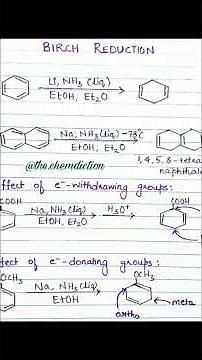 BIRCH REDUCTION
Li, NH₃ (liq)
EtOH, Et₂O
Na, NH₃ (liq) -78°C
EtOH, Et₂O
@the.chemdiction
1, 4, 5, 8-tetra
naphthale
ffect of e⁻-withdrawing groups:
COOH
Na, NH₃ (liq)
EtOH, Et₂O
H₃O⁺
COOH
fect of e⁻-donating groups:
OCH₃
Na, NH₃ (liq)
EtOH
OCH₃
meta
ortho